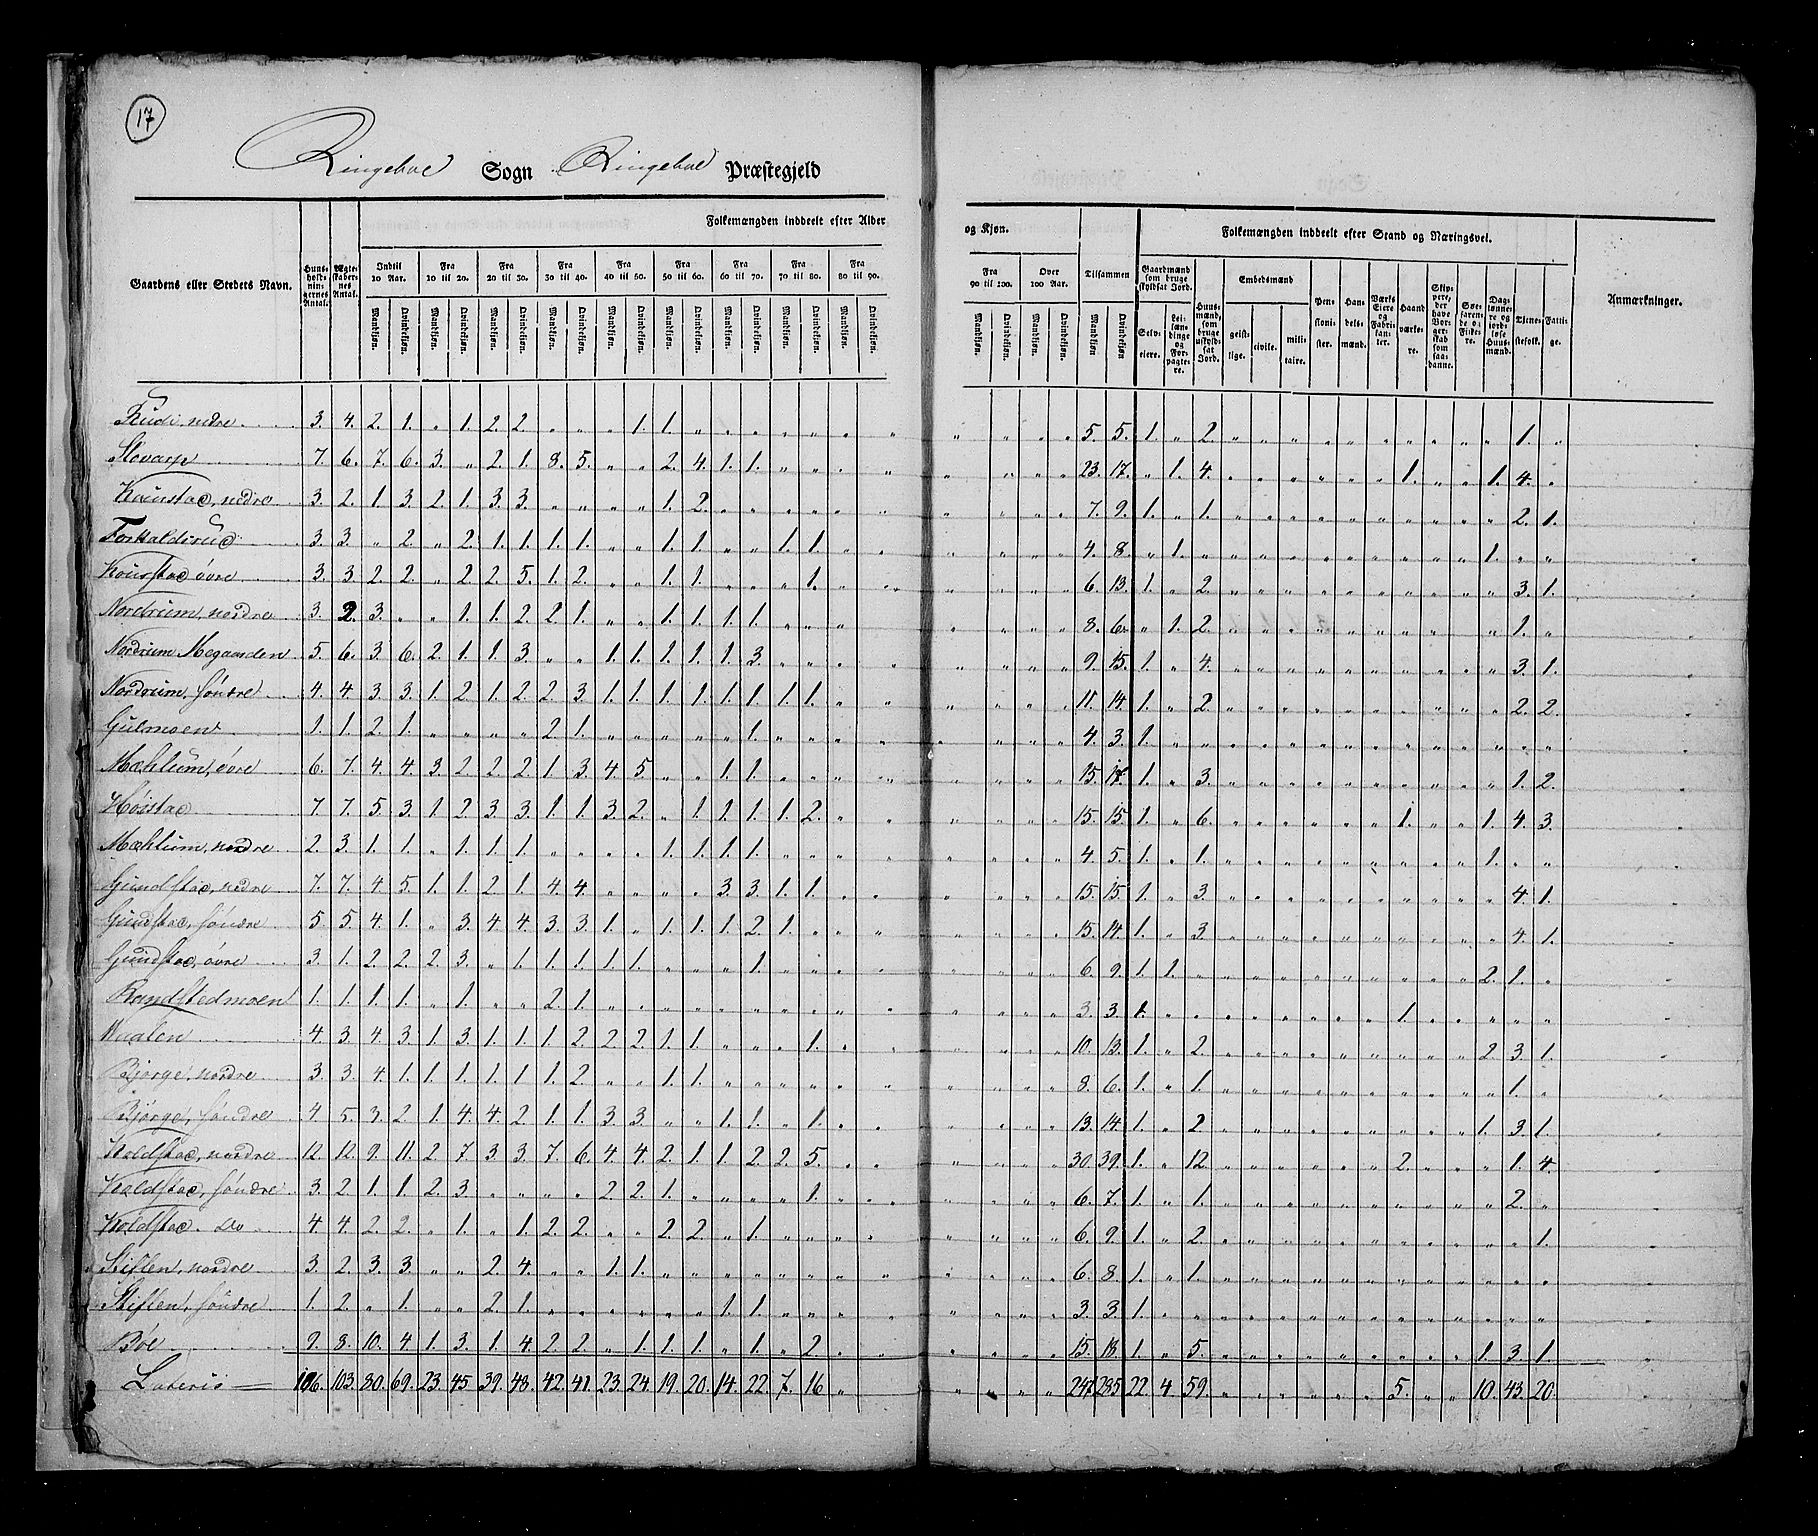 17
Ringeboe Sogn Ringeboe Præstegjeld
Folkemængden inddeelt efter Alder og Kjøn.
Folkemængden inddeelt efter Stand og Næringsvei.
Gaardens eller Stedets Navn.
Huusholdningernes Antal.
Ægteskabernes Antal.
Indtil 10 Aar. Fra 10 til 20. Fra 20 til 30. Fra 30 til 40. Fra 40 til 50. Fra 50 til 60. Fra 60 til 70. Fra 70 til 80. Fra 80 til 90.
Fra 90 til 100. Over 100 Aar. Tilsammen
Mandkjøn. Qvindekjøn. Mandkjøn. Qvindekjøn. Mandkjøn. Qvindekjøn. Mandkjøn. Qvindekjøn. Mandkjøn. Qvindekjøn. Mandkjøn. Qvindekjøn. Mandkjøn. Qvindekjøn. Mandkjøn. Qvindekjøn. Mandkjøn. Qvindekjøn. Mandkjøn. Qvindekjøn. Mandkjøn. Qvindekjøn. Mandkjøn Qvindekjøn.
Gaardmænd som bruge skyldsat Jord. Selveiere. Leilændinge og Forpagtere.
Huusmænd, som bruge uskyldsat Jord.
Embedsmænd geistlige. civile. militaire.
Pensionister. Handelsmænd. Værks Eiere og Fabrikanter. Haandværkere. Skippere, der have Borgerskab som saadanne. Søefarende og Fiskere. Daglønnere og jordløse Huusmænd. Tjenestefolk. Fattige.
Anmærkninger.
Rudi, nedre 3. 4. 2. 1. „ 1. 2. 2. „ „ „ 1. 1. „ „ „ „ „ „ „ „ „ „ „ 5. 5. 1. „ 2. „ „ „ „ „ „ „ „ „ „ 1. „
Slovarp 7. 6. 7. 6. 3. „ 2. 1. 8. 5. „ „ 2. 4. 1. 1. „ „ „ „ „ „ „ „ 23. 17. „ 1. 4. „ „ „ „ „ „ 1. „ „ 1. 4. „
Kounstad, nedre 3. 2. 1. 3. 2. 1. 3. 3. „ „ „ „ 1. 2. „ „ „ „ „ „ „ „ „ „ 7. 9. 1. „ 1. „ „ „ „ „ „ „ „ „ „ 2. 1.
Forkaldsrud 3. 3. „ 2. „ 2. 1. 1. 1. 1. „ „ 1. 1. „ „ 1. 1. „ „ „ „ „ „ 4. 8. „ 1. „ „ „ „ „ „ „ „ „ „ 1. „ „
Kounstad øvre 3. 3. 2. 2. „ 2. 2. 5. 1. 2. „ „ 1. 1. „ „ „ 1. „ „ „ „ „ „ 6. 13. 1. „ 2. „ „ „ „ „ „ „ „ „ „ 3. 1.
Nordrum, nordre 3. 2. 3. „ „ 1. 1. 2. 2. 1. „ „ 1. 1. 1. 1. „ „ „ „ „ „ „ „ 8. 6. „ 1. 2. „ „ „ „ „ „ „ „ „ „ 1. „
Nordrum Megaarden 5. 6. 3. 6. 2. 1. 1. 3. „ „ 1. 1. 1. 1. 1. 3. „ „ „ „ „ „ „ „ 9. 15. 1. „ 4. „ „ „ „ „ „ „ „ „ „ 3. 1.
Nordrum, søndre 4. 4. 3. 3. 1. 2. 1. 2. 2. 3. 1. 1. 1. 1. 1. 1. 1. 1. „ „ „ „ „ „ 11. 14. 1. „ 2. „ „ „ „ „ „ „ „ „ „ 2. 2.
Gulmoen 1. 1. 2. 1. „ „ „ „ 2. 1. „ „ „ „ „ 1. „ „ „ „ „ „ „ „ 4. 3. 1. „ „ „ „ „ „ „ „ „ „ „ „ „ „
Mæhlum, øvre 6. 7. 4. 4. 3. 2. 2. 2. 1. 3. 4. 5. „ „ 1. 1. „ „ „ „ „ „ „ „ 15. 17. 1. „ 3. „ „ „ „ „ „ „ „ „ „ 1. 2.
Høistad 7. 7. 5. 3. 1. 2. 3. 3. 1. 1. 3. 2. „ 1. 1. 1. 1. 2. „ „ „ „ „ „ 15. 15. 1. „ 6. „ „ „ „ „ „ 1. „ „ 1. 4. 3.
Mæhlum, nordre 2. 3. 1. 1. „ 1. 1. 1. „ „ „ „ 1. 1. 1. 1. „ „ „ „ „ „ „ „ 4. 5. 1. „ 1. „ „ „ „ „ „ „ „ „ 1. „ „
Gundstad, nedre 7. 7. 4. 5. 1. 1. 2. 1. 4. 4. „ „ „ „ 3. 3. 1. 1. „ „ „ „ „ „ 15. 15. 1. „ 3. „ „ „ „ „ „ „ „ „ „ 4. 1.
Gundstad, søndre 5. 5. 4. 1. „ 3. 4. 4. 3. 3. 1. „ 1. 1. 1. 2. 1. „ „ „ „ „ „ „ 15. 14. 1. „ 3. „ „ „ „ „ „ „ „ „ „ 4. 1.
Gundstad, øvre 3. 1. 2. 2. 2. 3. „ 1. 1. 1. 1. 1. „ „ „ 1. „ „ „ „ „ „ „ „ 6. 9. 1. 1. „ „ „ „ „ „ „ „ „ „ 2. 1. „
Randstedmoen 1. 1. 1. 1. „ 1. „ „ 2. 1. „ „ „ „ „ „ „ „ „ „ „ „ „ „ 3. 3. 1. „ „ „ „ „ „ „ „ 1. „ „ „ „ „
Waalen 4. 3. 4. 3. 1. 3. 1. 1. 1. 2. 2. 2. 1. 1. „ „ „ 1. „ „ „ „ „ „ 10. 13. 1. „ 2. „ „ „ „ „ „ „ „ „ 2. 3. 1.
Bjørge, nordre 3. 3. 4. 1. 1. 1. 1. 1. 1. 2. „ „ 1. 1. „ „ „ „ „ „ „ „ „ „ 8. 6. 1. „ 1. „ „ „ „ „ „ „ „ „ „ 1. „
Bjørge, søndre 4. 5. 3. 2. 1. 4. 4. 2. 1. 1. 3. 3. „ „ 1. 1. „ 1. „ „ „ „ „ „ 13. 14. 1. „ 2. „ „ „ „ „ „ „ „ „ 1. 3. 1.
Koldstad, nordre 12. 12. 9. 11. 2. 7. 3. 3. 7. 6. 4. 4. 2. 1. 1. 2. 2. 5. „ „ „ „ „ „ 30. 39. 1. „ 12. „ „ „ „ „ „ 2. „ „ „ 1. 4.
Koldstad, søndre 3. 2. 1. 1. 2. 3. „ „ „ „ 2. 2. 1. „ „ „ „ 1. „ „ „ „ „ „ 6. 7. 1. „ 1. „ „ „ „ „ „ „ „ „ „ 2. „
Koldstad. Do 4. 4. 2. 2. „ 1. „ 1. 2. 2. „ „ 2. 2. „ 1. „ „ „ „ „ „ „ „ 6. 9. 1. „ 2. „ „ „ „ „ „ „ „ „ „ „ 1.
Stiflen, nordre 3. 2. 3. 3. „ „ 2. 4. „ „ 1. 1. „ „ „ „ „ „ „ „ „ „ „ „ 6. 8. 1. „ 1. „ „ „ „ „ „ „ „ „ „ „ „
Stiflen, søndre 1. 2. „ 1. „ „ 2. 1. „ „ „ „ „ „ 1. 1. „ „ „ „ „ „ „ „ 3. 3. 1. „ „ „ „ „ „ „ „ „ „ „ „ „ „
Bøe 9. 8. 10. 4. 1. 3. 1. 4. 2. 2. „ 1. 1. 1. „ 1. „ 2. „ „ „ „ „ „ 15. 18. 1. „ 5. „ „ „ „ „ „ „ „ „ 1. 3. 1.
Lateris 106. 103. 80. 69. 23. 45. 39. 48. 42. 41. 23. 24. 19. 20. 14. 22. 7. 16. „ „ „ „ „ 247. 285. 22. 4. 59. „ „ „ „ „ „ 5. „ „ 10. 43. 20.